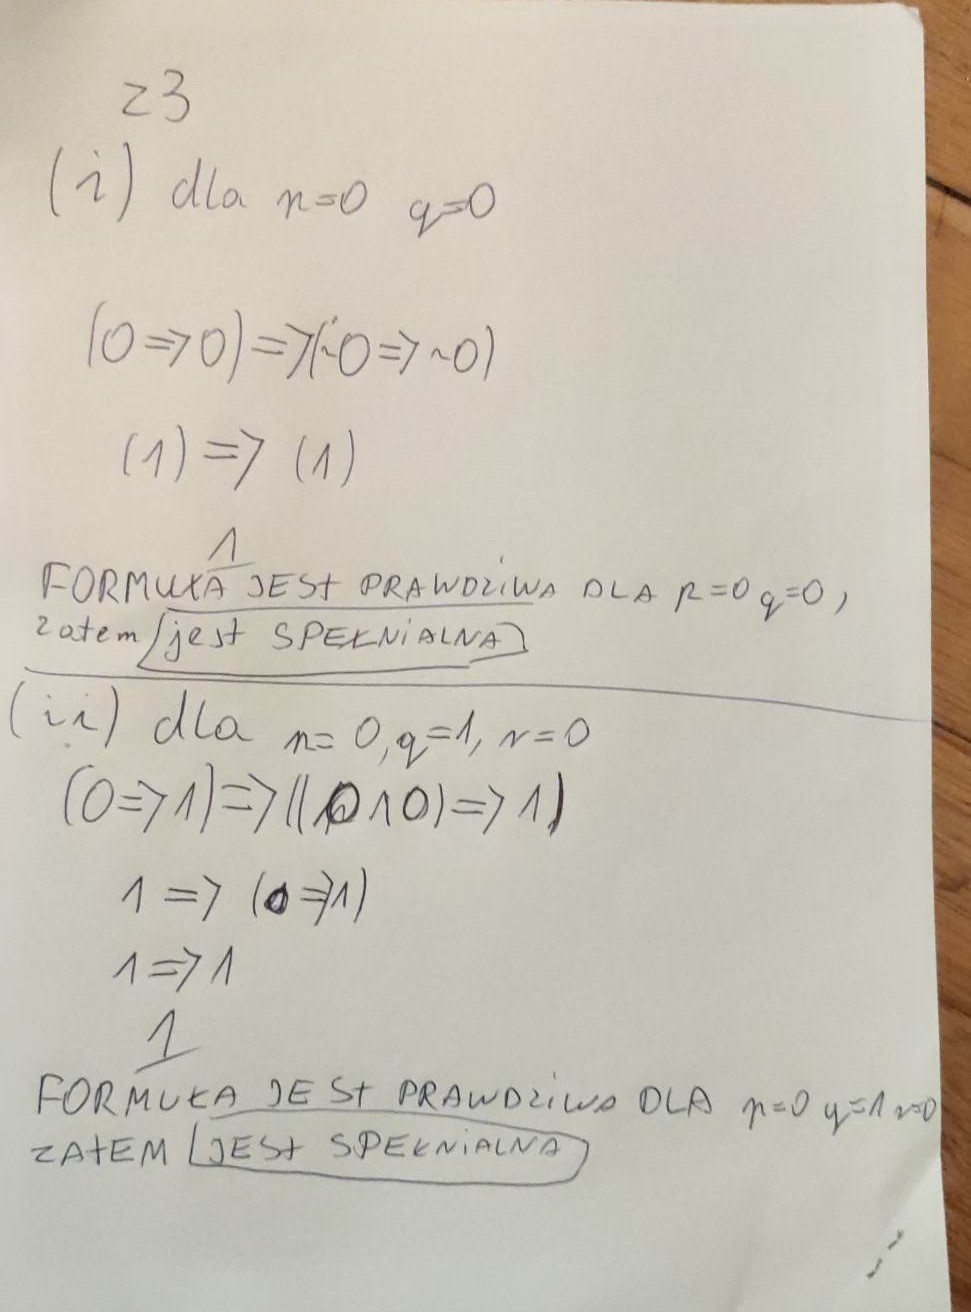 z3
(i) dla p=0 q=0
(0=>0)=>(~0=>~0)
(1)=>(1)
1
FORMUŁA JEST PRAWDZIWA DLA p=0 q=0,
zatem jest SPEŁNIALNA
(ii) dla p=0, q=1, r=0
(0=>1)=>((0∧0)=>1)
1=>(0=>1)
1=>1
1
FORMUŁA JEST PRAWDZIWA DLA p=0 q=1 r=0
ZATEM JEST SPEŁNIALNA